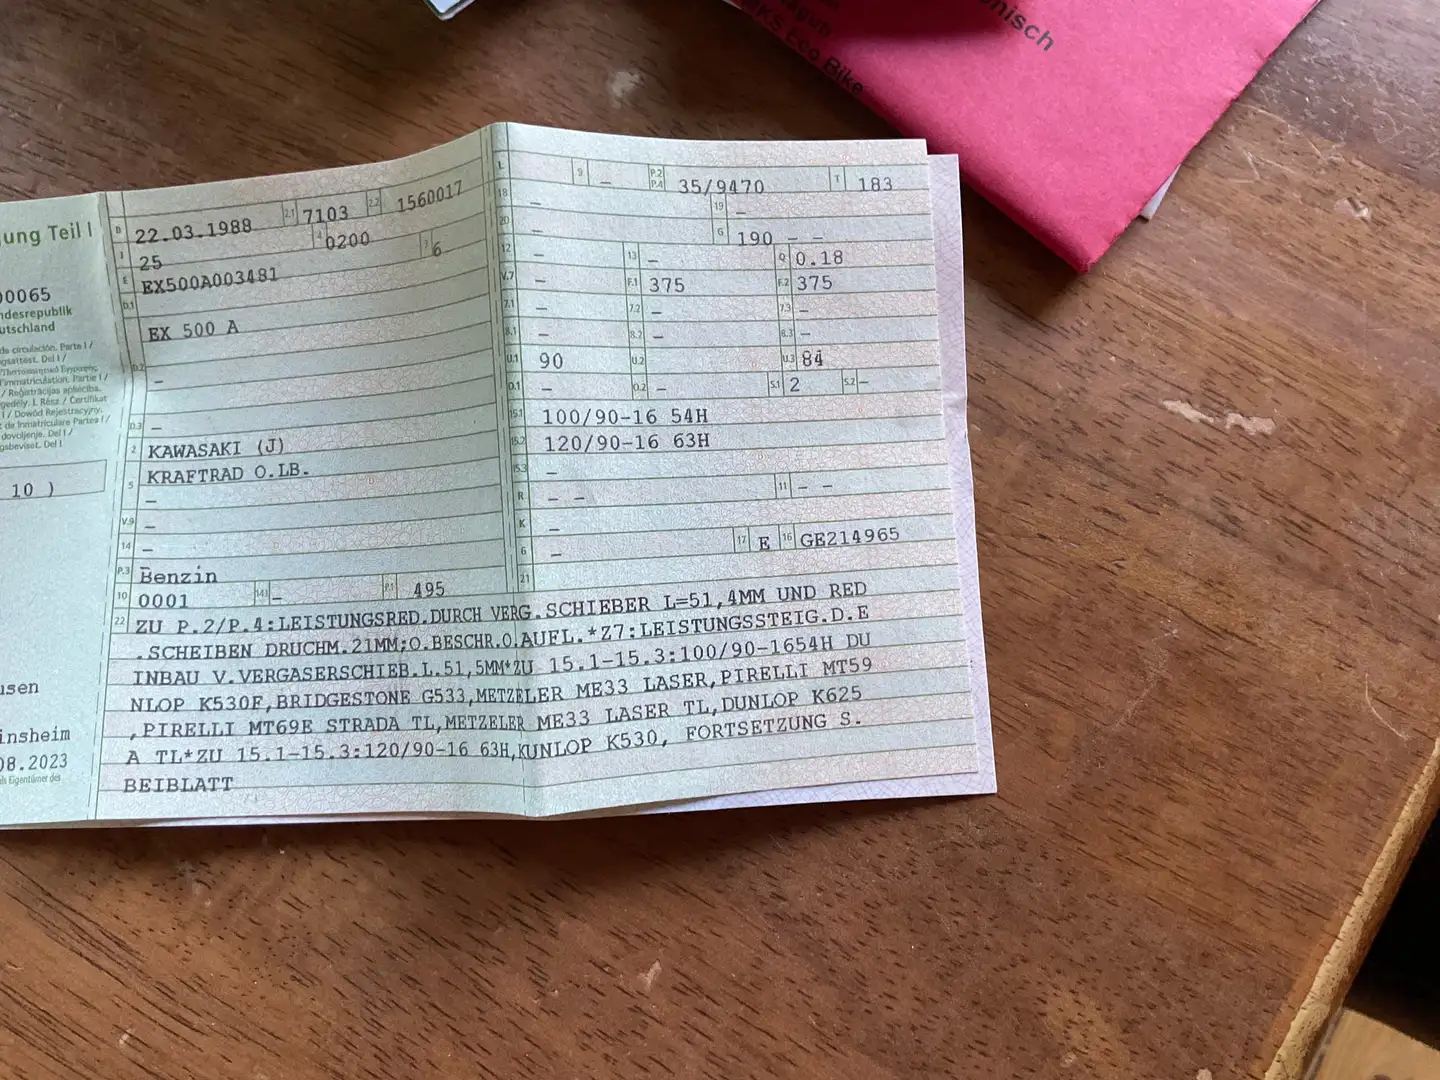 nisch
Eco Bike
ung Teil I
00065
ndesrepublik
utschland
de circulación. Parte I /
10 )
usen
insheim
08.2023
B 22.03.1988 2.1 7103 2.2 1560017
J 25 4 0200 3 6
E EX500A003481
D.1
EX 500 A
D.2 –
D.3 –
2 KAWASAKI (J)
5 KRAFTRAD O.LB.
–
V.9 –
14 –
P.3 Benzin
10 0001 14.1 – P.1 495
L 9 – P.2 P.4 35/9470 T 183
18 – 19 –
20 – G 190 – –
12 – 13 – Q 0.18
V.7 – F.1 375 F.2 375
7.1 – 7.2 – 7.3 –
8.1 – 8.2 – 8.3 –
U.1 90 U.2 U.3 84
O.1 – O.2 – S.1 2 S.2 –
15.1 100/90-16 54H
15.2 120/90-16 63H
15.3 –
R – – 11 – –
K –
6 – 17 E 16 GE214965
21
22 ZU P.2/P.4:LEISTUNGSRED.DURCH VERG.SCHIEBER L=51,4MM UND RED
.SCHEIBEN DRUCHM.21MM;O.BESCHR.O.AUFL.*Z7:LEISTUNGSSTEIG.D.E
INBAU V.VERGASERSCHIEB.L.51,5MM*ZU 15.1-15.3:100/90-1654H DU
NLOP K530F,BRIDGESTONE G533,METZELER ME33 LASER,PIRELLI MT59
,PIRELLI MT69E STRADA TL,METZELER ME33 LASER TL,DUNLOP K625
A TL*ZU 15.1-15.3:120/90-16 63H,KUNLOP K530, FORTSETZUNG S.
BEIBLATT